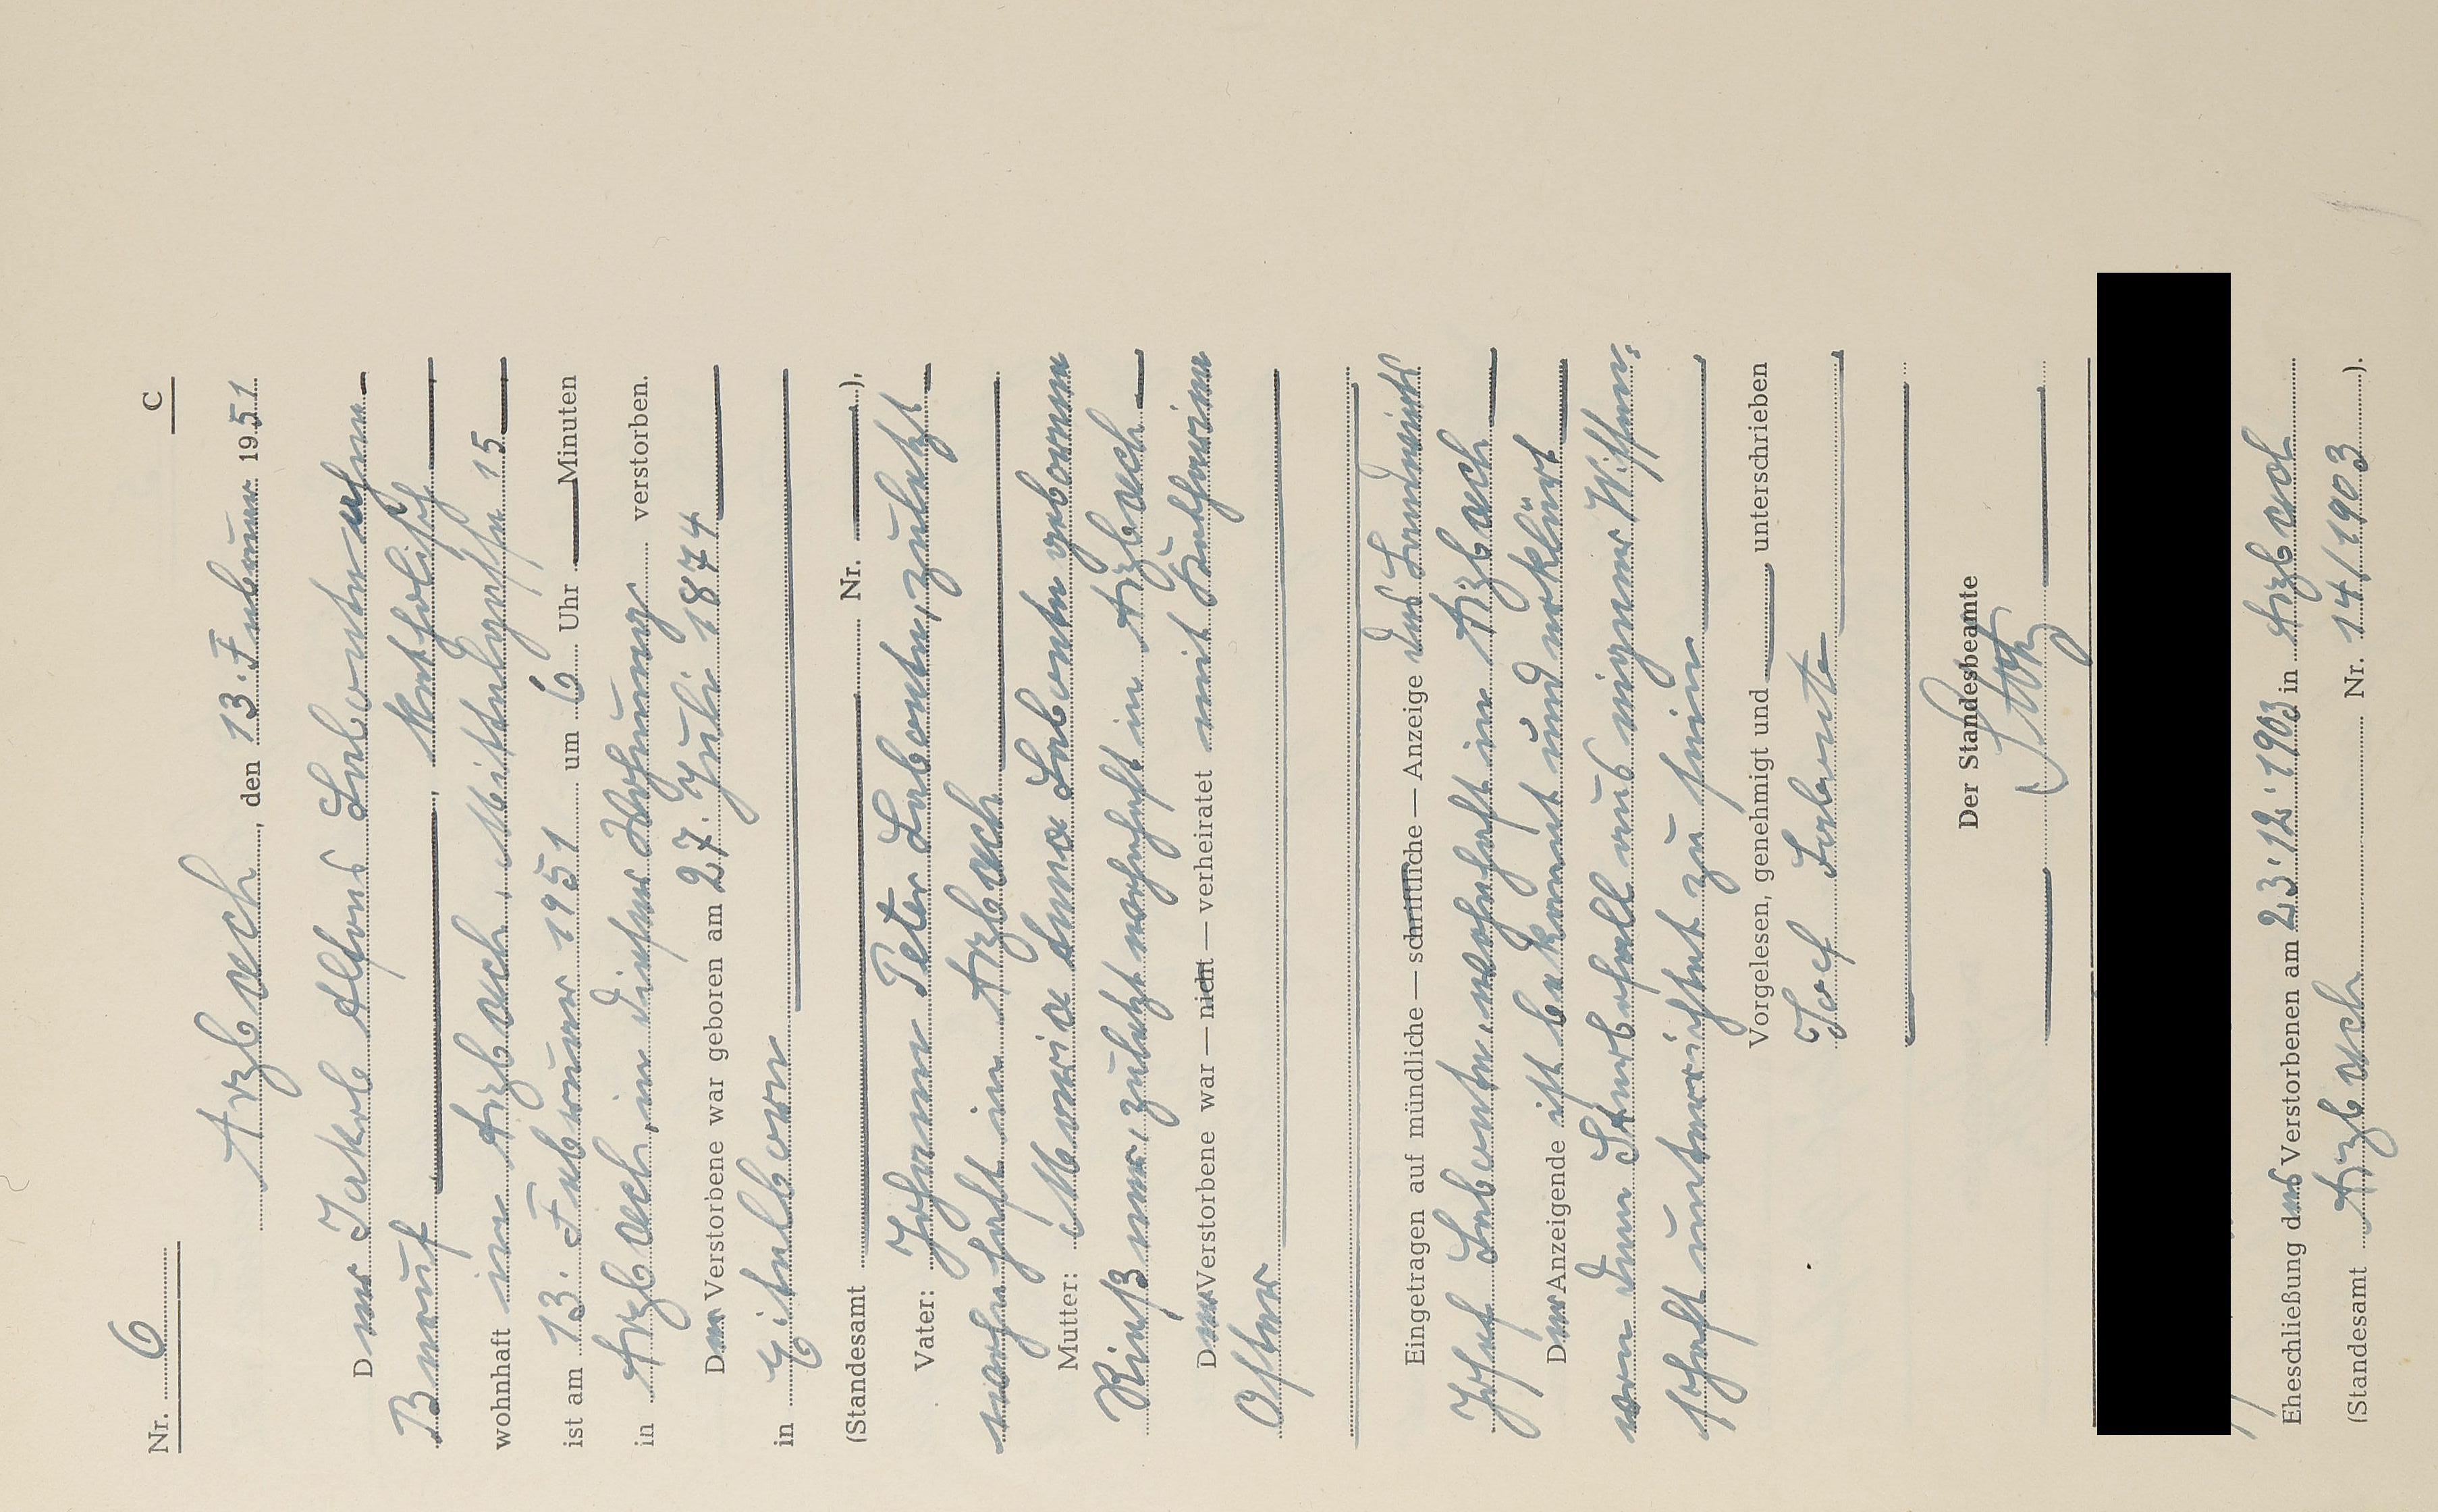 Nr. 6 C
Arzbach, den 13. Februar 1951
Der Jakob Alfons Labonte ohne
Beruf, katholisch
wohnhaft in Arzbach, Mittelgasse 15
ist am 13. Februar 1951 um 6 Uhr Minuten
in Arzbach, in dieser Wohnung verstorben.
Der Verstorbene war geboren am 27. Juli 1874
in Eitelborn
(Standesamt Nr. ),
Vater: Johann Peter Labonte, zuletzt
wohnhaft in Arzbach
Mutter: Maria Anna Labonte geborene
Rieß, zuletzt wohnhaft in Arzbach
Der Verstorbene war — nicht — verheiratet mit Katharina
Oster
Eingetragen auf mündliche — schriftliche — Anzeige des Landwirts
Josef Labonte, wohnhaft in Arzbach
Der Anzeigende ist bekannt und erklärt
von dem Sterbefall aus eigener Wissen-
schaft unterrichtet zu sein
Vorgelesen, genehmigt und unterschrieben
Josef Labonte
Der Standesbeamte
Eheschließung des Verstorbenen am 23.12.1903 in Arzbach
(Standesamt Arzbach Nr. 14/1903).